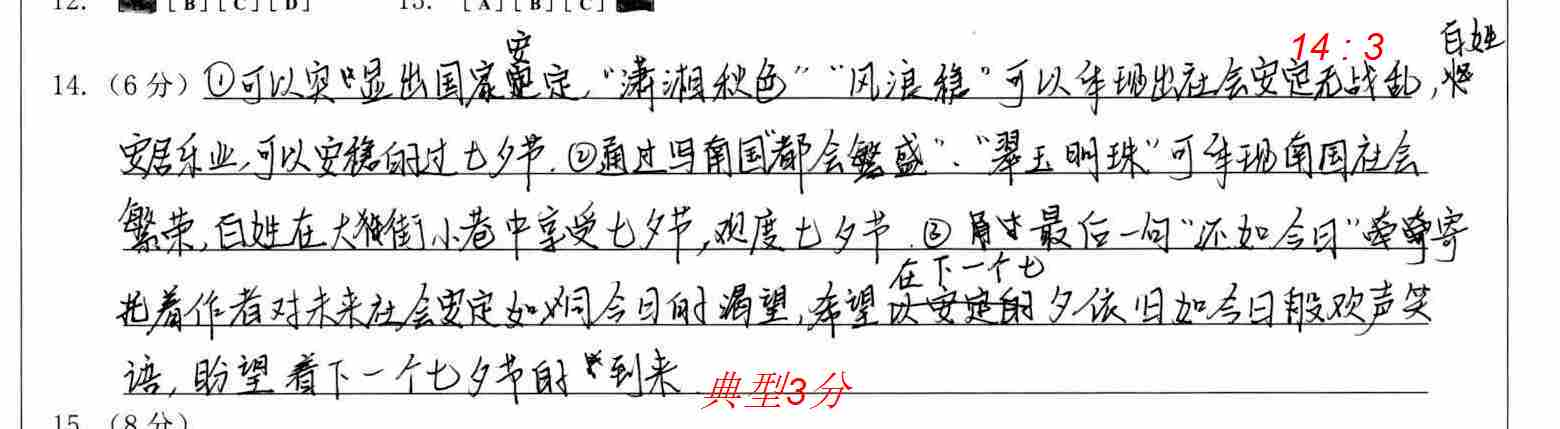 12. [B][C][D] 13. [A][B][C]
14:3
14.(6分)①可以突显出国家安定,“潇湘秋色”“风浪稳”可以体现出社会安定无战乱,百姓
安居乐业,可以安稳的过七夕节.②通过写南国“都会繁盛”、“翠玉明珠”可体现南国社会
繁荣,百姓在大街小巷中享受七夕节,观度七夕节.③最后一句“还如今日”寄
托着作者对未来社会安定如同今日的渴望,希望在下一个七夕依旧如今日般欢声笑
语,盼望着下一个七夕节的到来.
典型3分
15.(8分)